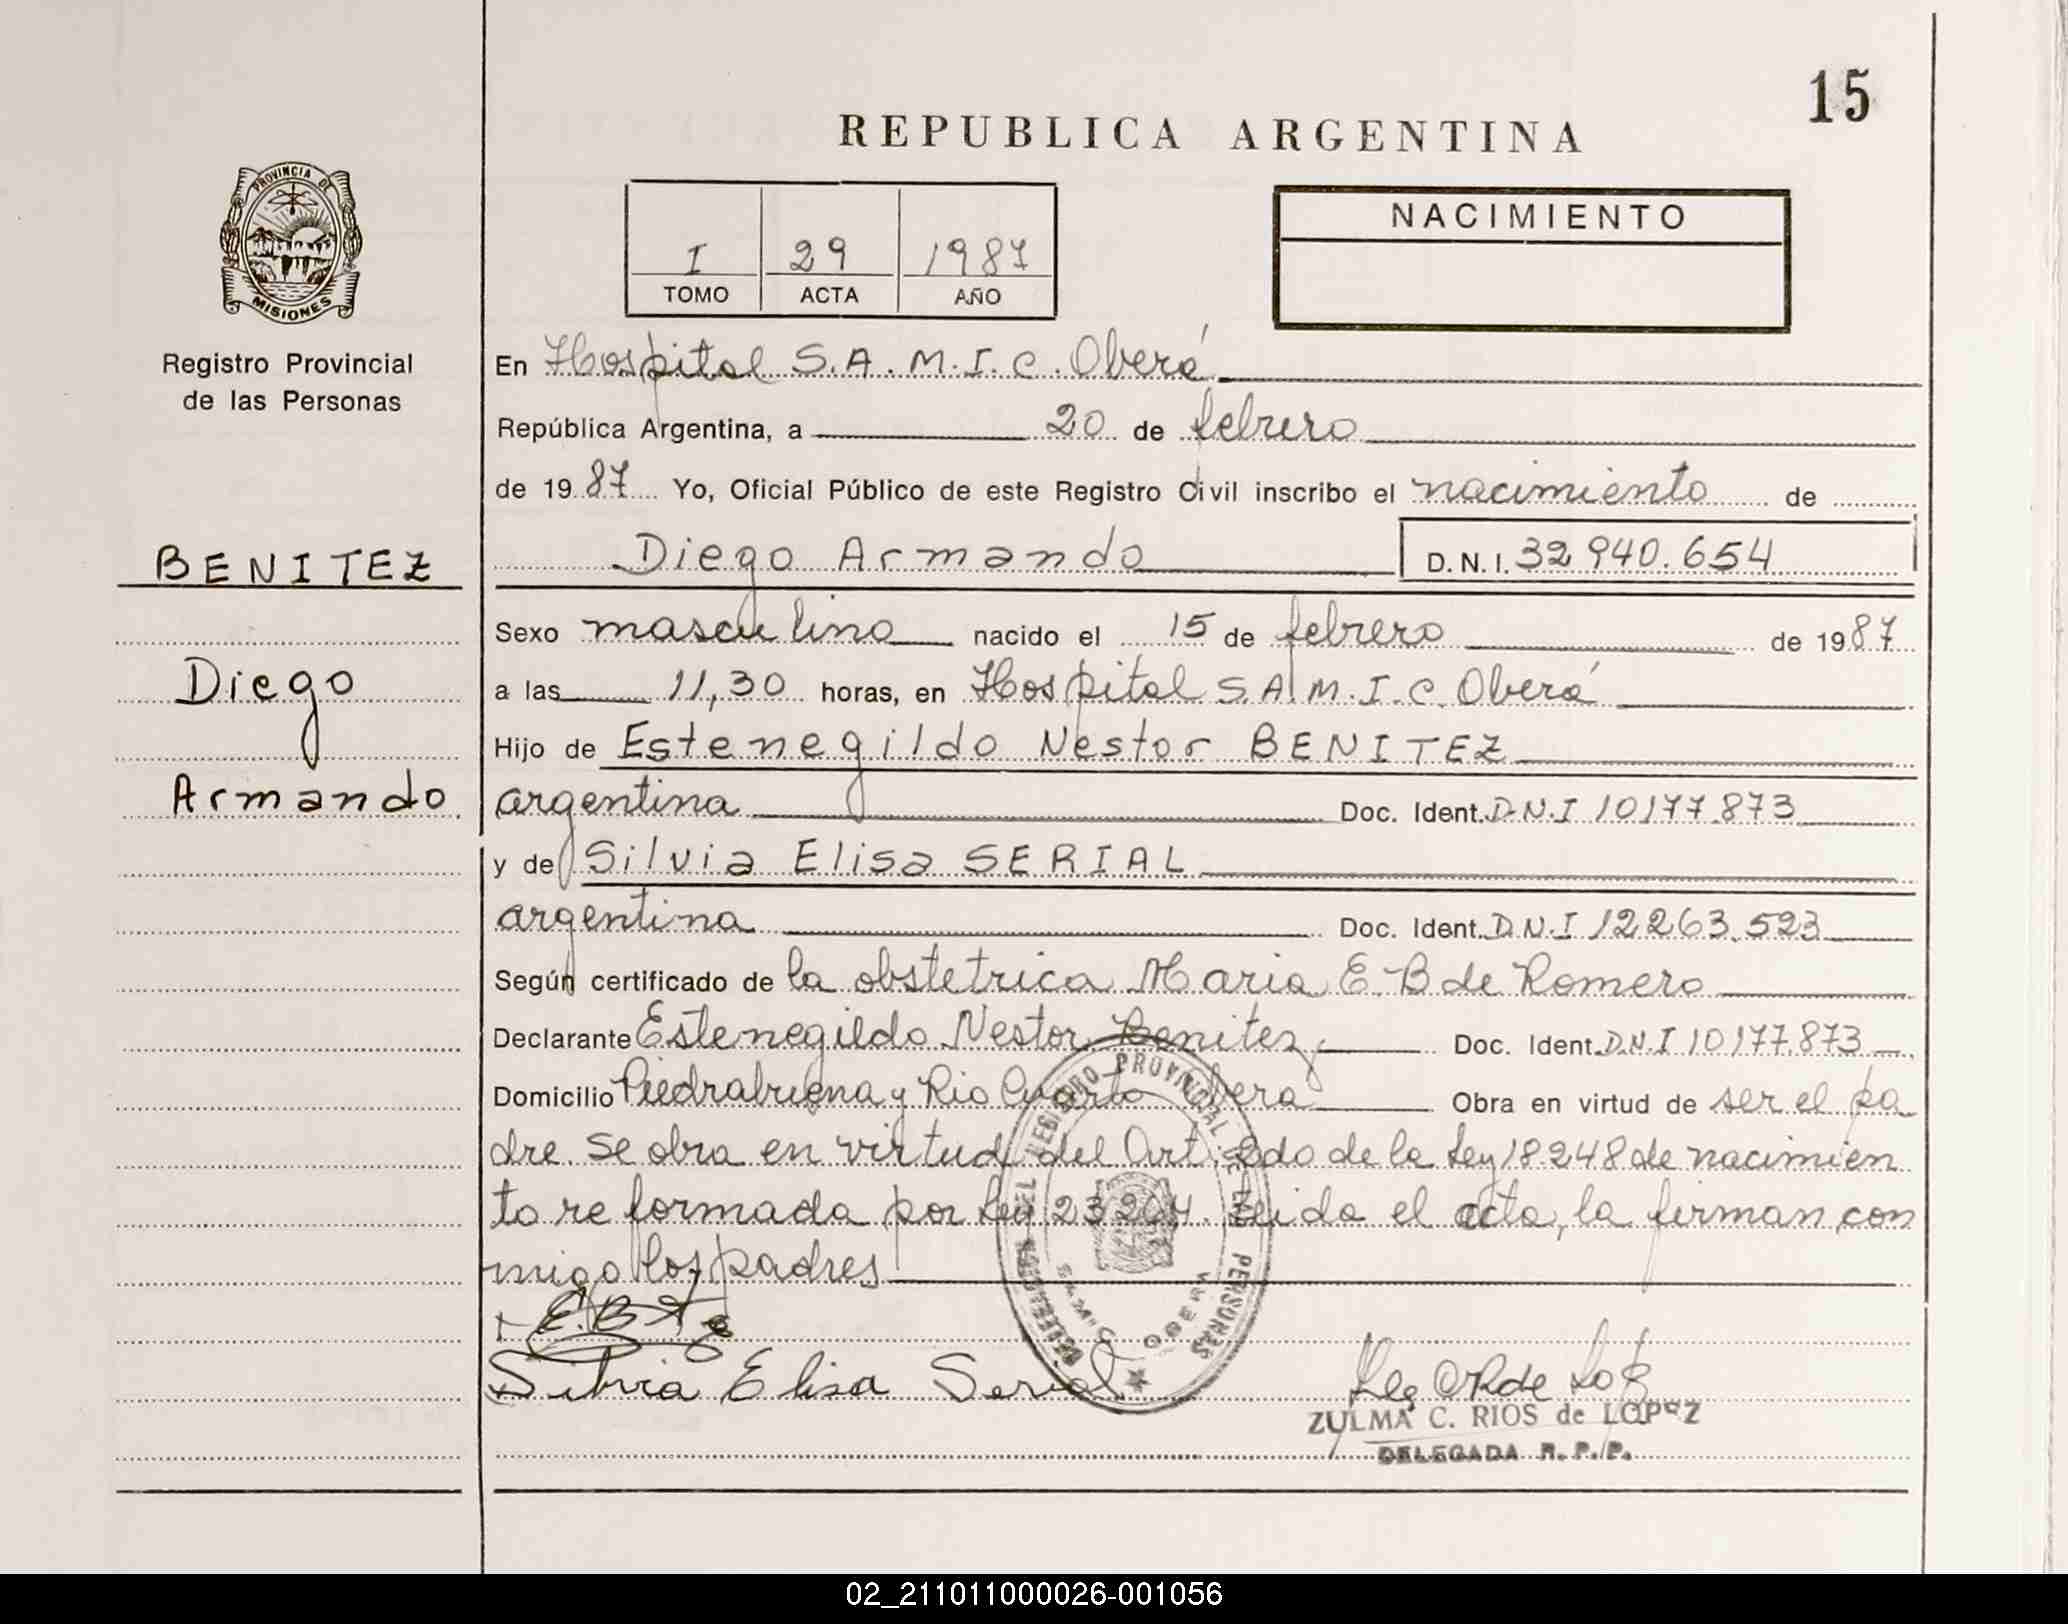 15
REPUBLICA ARGENTINA
PROVINCIA DE
MISIONES
Registro Provincial
de las Personas
I 29 1987
TOMO ACTA AÑO
NACIMIENTO
En Hospital S.A.M.I.C. Oberá
República Argentina, a 20 de febrero
de 1987 Yo, Oficial Público de este Registro Civil inscribo el nacimiento de
Diego Armando D.N.I. 32.940.654
BENITEZ
Diego
Armando
Sexo masculino nacido el 15 de febrero de 1987
a las 11,30 horas, en Hospital S.A.M.I.C. Oberá
Hijo de Estenegildo Nestor BENITEZ
argentina Doc. Ident. D.N.I 10177.873
y de Silvia Elisa SERIAL
argentina Doc. Ident. D.N.I 12263.523
Según certificado de la obstetrica Maria E. B de Romero
Declarante Estenegildo Nestor Benitez Doc. Ident. D.N.I 10177.873
Domicilio Piedrabuena y Rio Cuarto Obera Obra en virtud de ser el pa
dre. Se obra en virtud del Art. 2do de la Ley 18248 de nacimien
to reformada por Ley 23264. Leida el acta, la firman con
migo los padres
Silvia Elisa Serial
REGISTRO PROVINCIAL DE LAS PERSONAS
DELEGACION DEL
S.A.M.I.C OBERA
ZULMA C. RIOS de LOPEZ
DELEGADA R. P. P.
02_211011000026-001056